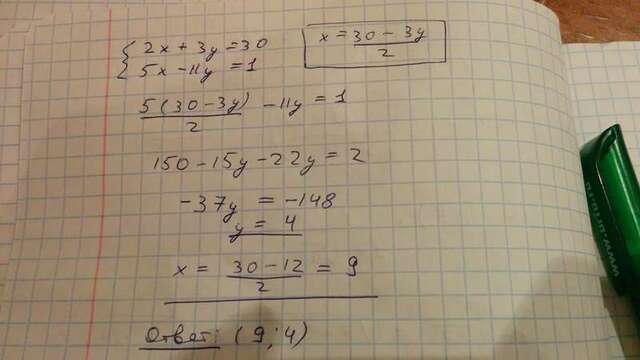 { 2x + 3y = 30
5x - 11y = 1
x = (30 - 3y)/2
5(30 - 3y)/2 - 11y = 1
150 - 15y - 22y = 2
-37y = -148
y = 4
x = (30 - 12)/2 = 9
Ответ: (9; 4)